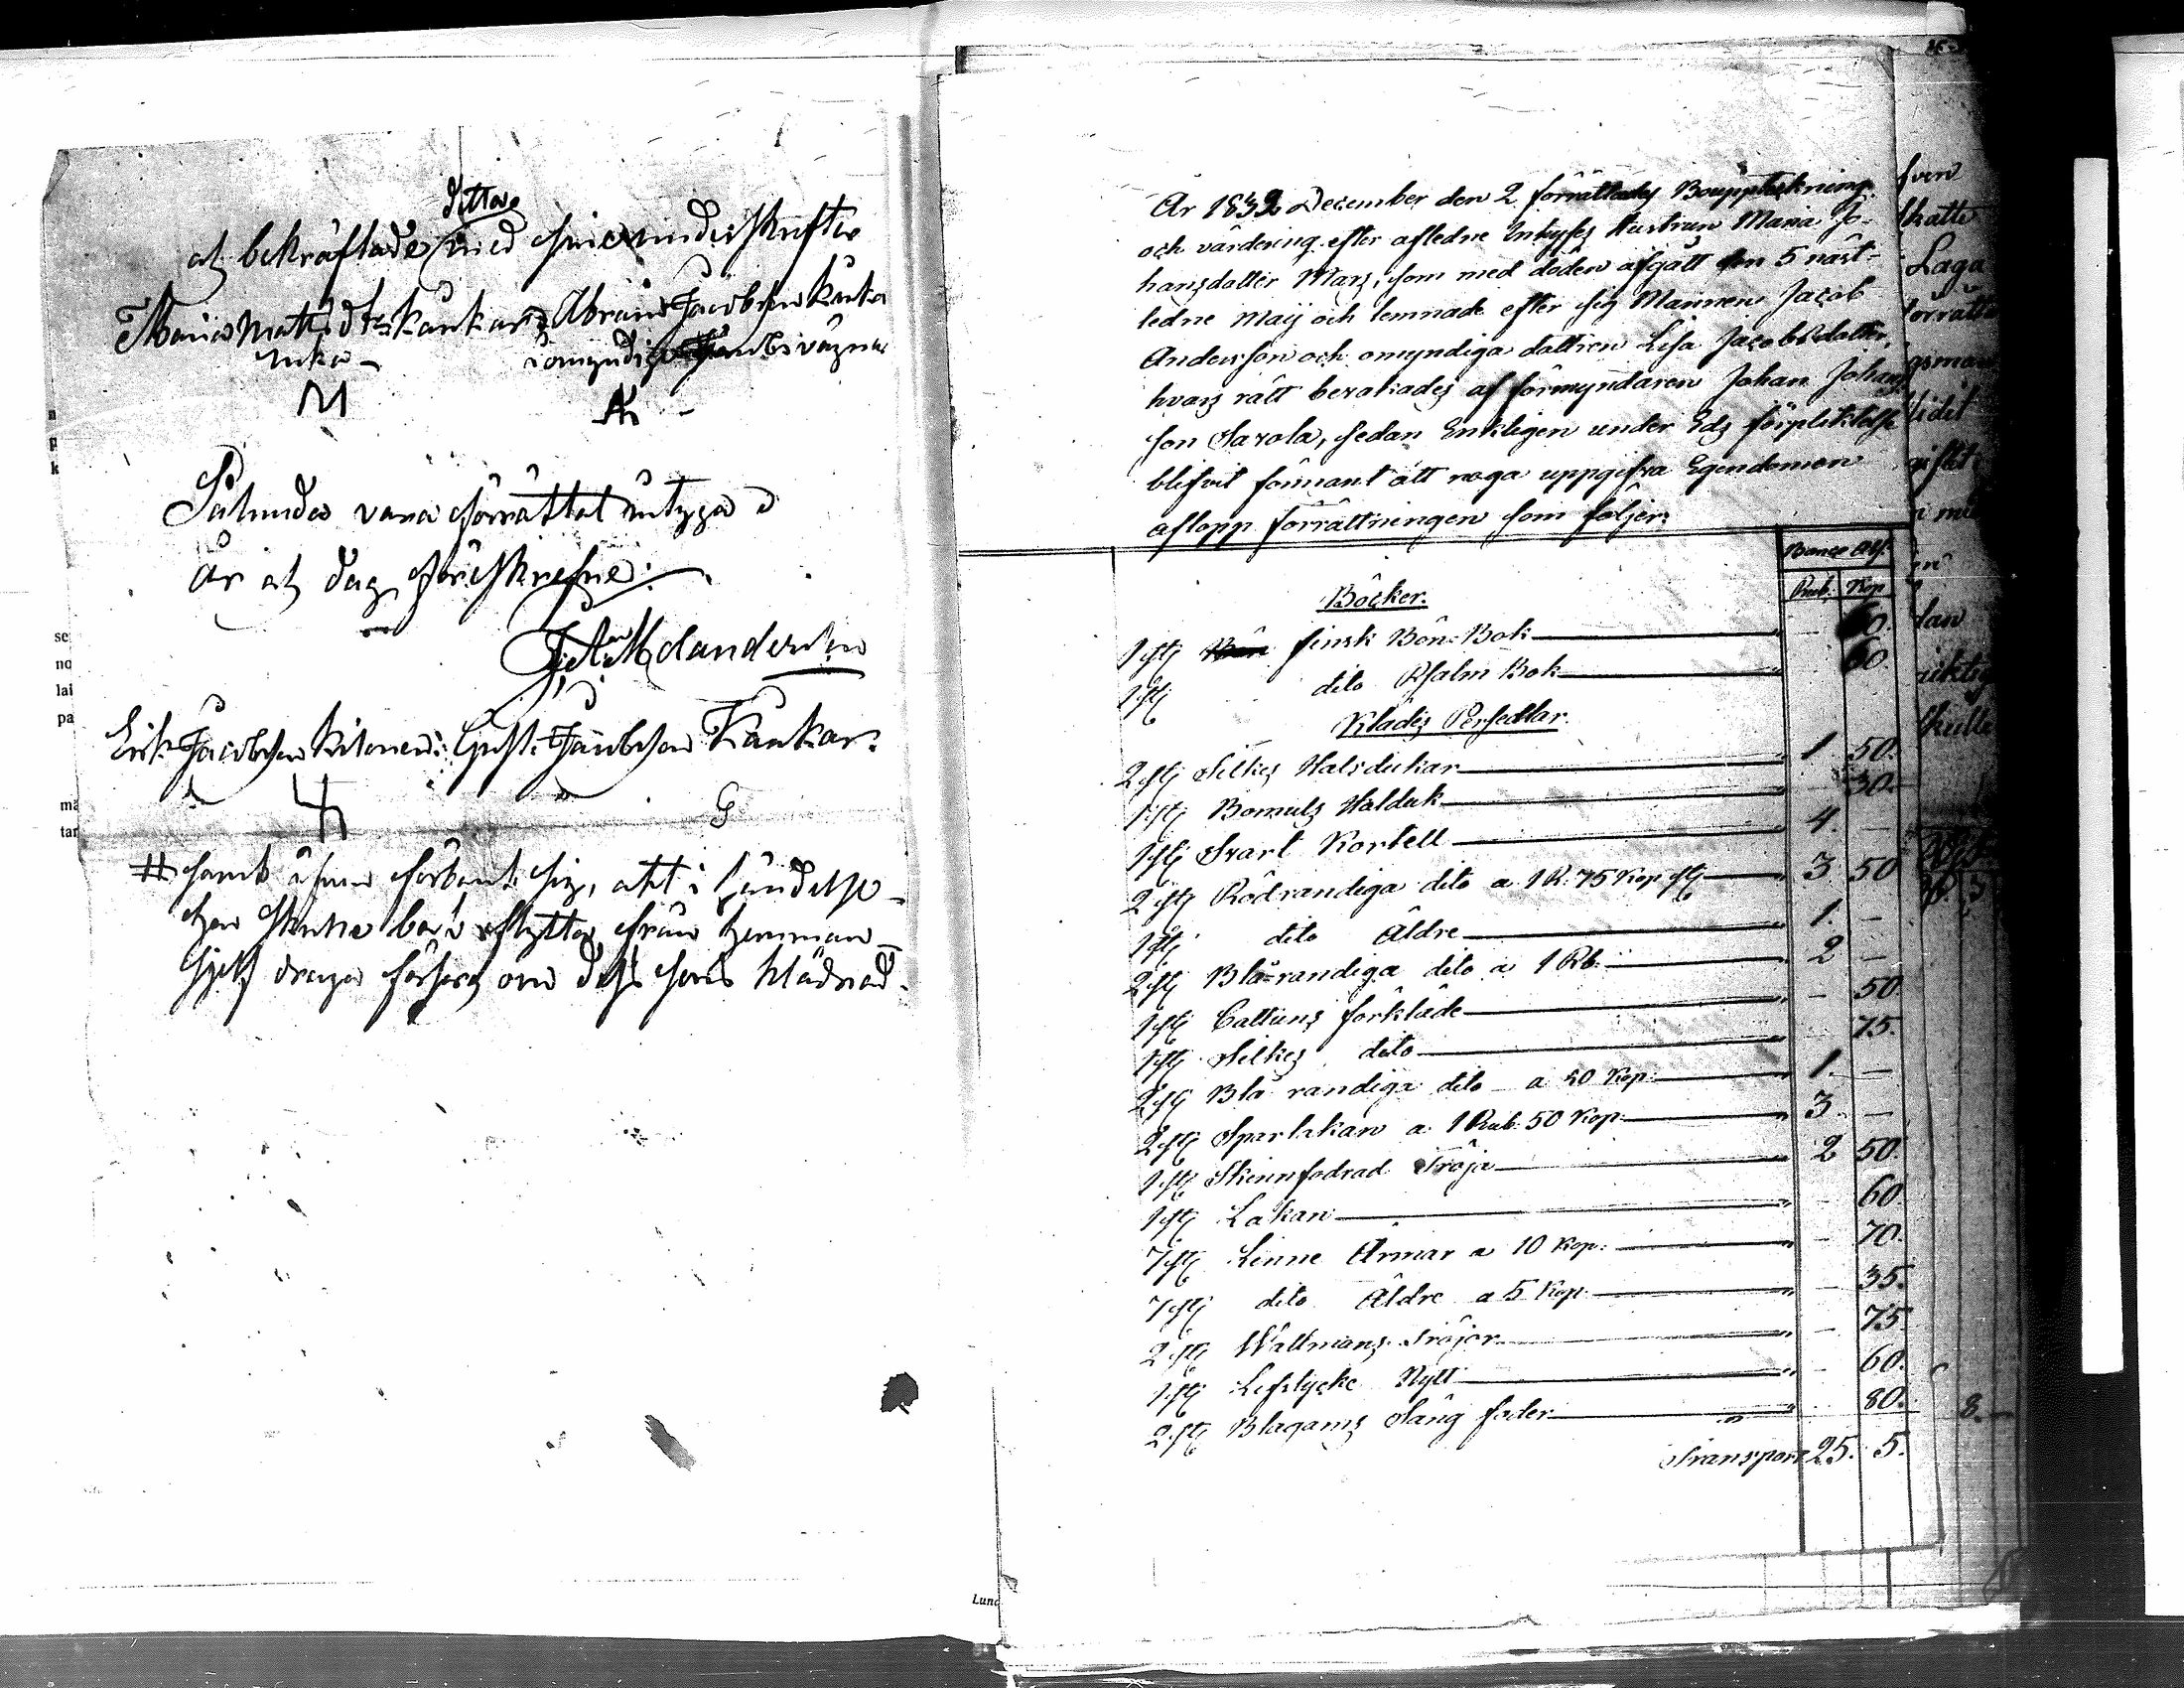 dettas
och bekräftades med sine underskrifter
Maria Matts dtr Kankar Abram Jacobson Kankar
enka
i omyndiga Barns vägnar
M
Sålunda vara förrättat intyga
År och dag förskrefne:
Erik Jacobson Ritonen: Gust. Jacobson Kankar.
G
# samt åfven förbant sig, att i händelse
han skulle bort flytta från hemman
sjelf draga försorg om dess sons klädnad.
Lund
År 1832 December den 2 förrättades Bouppteckning
och värdering efter afledne Inhyses Hustrun Maria Jo-
hansdotter Mars, som med döden afgått den 5 näst-
ledne Maij och lemnade efter sig Mannen Jacob
Andersson och omyndiga dottren Lisa Jacobsdotter,
hvars rätt bevakades af förmyndaren Johan Johans
son Saxola, sedan Enkligen under Eds förpliktelse
blifvit förmant att noga uppgifva Egendomen
aflopp förrättningen som följer:
Banco Ass.
Rub. Kop
Böcker.
1 st finsk Bön Bok 60.
1 st dito Psalm Bok 60.
Klädes Persedlar.
2 st Silkes Halsdukar 1 50.
1 st Bomuls Halduk 30.
1 st Svart Kortell 4. —
2 st Rödrandiga dito a 1 R. 75 Kop st 3 50
1 st dito Äldre 1. —
2 st Blå-randiga dito a 1 Rb. 2 —
1 st Cattuns förkläde — 50.
1 st Silkes dito 75.
2 st Blå randiga dito a 50 Kop. 1. —
2 st Sparlakan a 1 Rub. 50 Kop. 3 —
1 st Skinnfodrad Tröja 2 50.
1 st Lakan — 60.
7 st Linne Ärmar a 10 Kop. — 70.
7 st dito Äldre a 5 Kop. — 35.
2 st Wallmans Tröjor — 75
1 st Lifstycke Nytt — 60.
2 st Blagarns Säng foder 80.
Transport 25. 5.